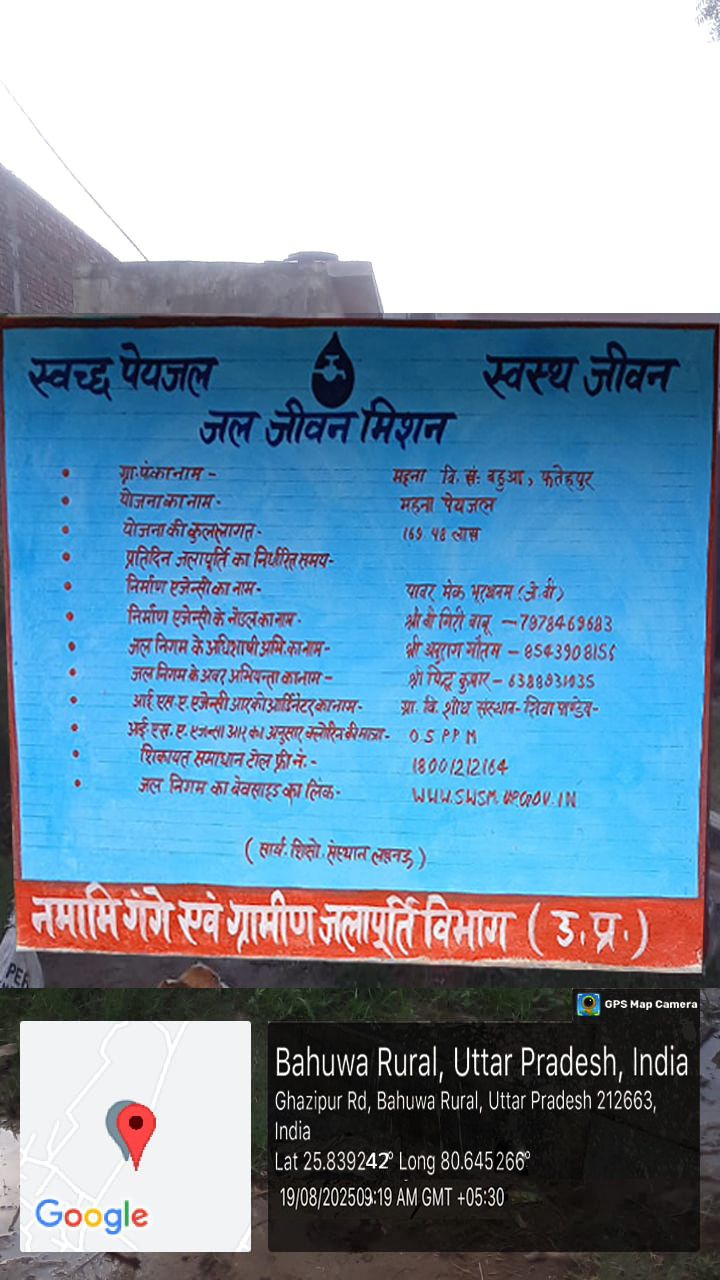 स्वच्छ पेयजल स्वस्थ जीवन
जल जीवन मिशन
ग्रा.पं.का नाम - महना वि. सं. बहुआ, फतेहपुर
योजना का नाम - महना पेयजल
योजना की कुल लागत - 169.48 लाख
प्रतिदिन जलापूर्ति का निर्धारित समय-
निर्माण एजेन्सी का नाम - पावर मेक भूरथनम (जे.वी)
निर्माण एजेन्सी के नोडल का नाम - श्री बी गिरी बाबू - 7978469683
जल निगम के अधिशाषी अभि. का नाम- श्री अनुराग गौतम - 8543908156
जल निगम के अवर अभियन्ता का नाम - श्री पिन्टू कुमार - 6388931035
आई एस.ए एजेन्सी आर को आर्डिनेटर का नाम- ग्रा. वि. शोध संस्थान- शिवा पाण्डेय-
आई.एस.ए. एजेन्सी आर का अनुसार क्लोरिन की मात्रा- 0 5 P P M
शिकायत समाधान टोल फ्री नं.- 18001212164
जल निगम का वेबसाइड का लिंक- WWW.SWSM.UPGOV.IN
संस्थान लखनऊ)
नमामि गंगे एवं ग्रामीण जलापूर्ति विभाग (उ.प्र.)
PER
GPS Map Camera
Bahuwa Rural, Uttar Pradesh, India
Ghazipur Rd, Bahuwa Rural, Uttar Pradesh 212663,
India
Lat 25.839242° Long 80.645266°
19/08/202509:19 AM GMT +05:30
Google